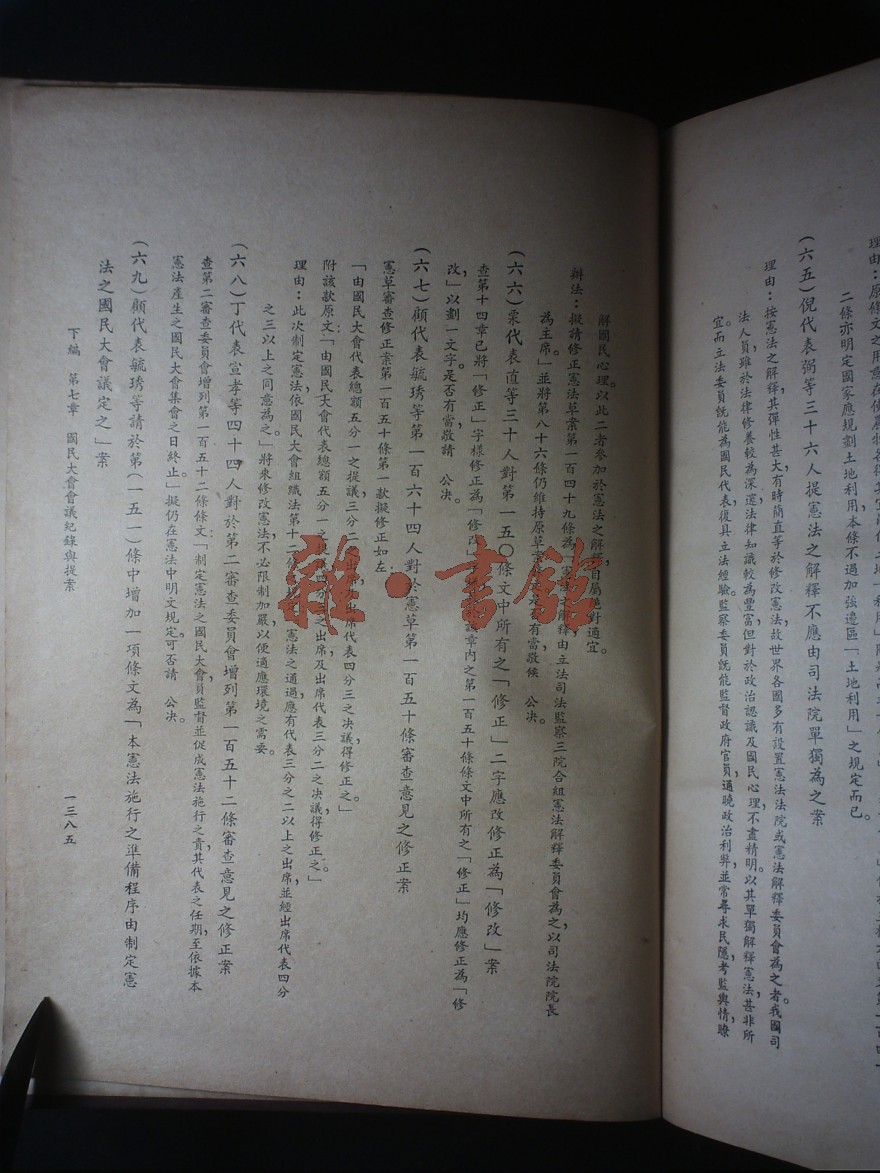 二條亦明定國家應規劃土地利用，本條不過加強邊區「土地利用」之規定而已。
（六五）倪代表弼等三十六人提憲法之解釋不應由司法院單獨為之案
理由：按憲法之解釋，其彈性甚大，有時簡直等於修改憲法，故世界各國多有設置憲法法院或憲法解釋委員會為之者。我國司
法人員，雖於法律修養較為深邃，法律知識較為豐富，但對於政治認識及國民心理，不盡精明。以其單獨解釋憲法，甚非所
宜。而立法委員既能為國民代表，復具立法經驗。監察委員既能監督政府官員，通曉政治利弊，並常尋求民隱，考監輿情，瞭
解國民心理。以此二者參加於憲法之解釋，自屬絕對適宜。
辦法：擬請修正憲法草案第一百四十九條為：憲法之解釋由立法司法監察三院合組憲法解釋委員會為之，以司法院院長
為主席」並將第八十六條仍維持原草案 是否有當敬候　公決。
（六六）栗代表直等三十人對第一五〇條文中所有之「修正」二字應改修正為「修改」案
查第十四章已將「修正」字樣修正為「修改」 章內之第一百五十條條文中所有之「修正」均應修正為「修
改」以劃一文字。是否有當，敬請　公決。
（六七）顧代表毓琇等第一百六十四人對於憲草第一百五十條審查意見之修正案
憲草審查修正案第一百五十條第一款擬修正如左：
「由國民大會代表總額五分一之提議，三分二 出席，出席代表四分三之決議得修正之。」
附該款原文：「由國民大會代表總額五分一之 四分 之出席，及出席代表三分二之決議得修正之。」
理由：此次制定憲法，依國民大會組織法第十二條 憲法之通過應有代表三分之二以上之出席，並經出席代表四分
之三以上之同意為之。」將來修改憲法，不必限制加嚴，以便適應環境之需要。
（六八）丁代表宣孝等四十四人對於第二審查委員會增列第一百五十二條審查意見之修正案
查第二審查委員會增列第一百五十二條條文：「制定憲法之國民大會，負監督並促成憲法施行之責，其代表之任期，至依據本
憲法產生之國民大會集會之日終止」擬仍在憲法中明文規定，可否請　公決。
（六九）顧代表毓琇等請於第（一五一）條中增加一項條文為「本憲法施行之準備程序由制定憲
法之國民大會議定之」案
下編　第七章　國民大會會議紀錄與提案
一三八五
雜·書館